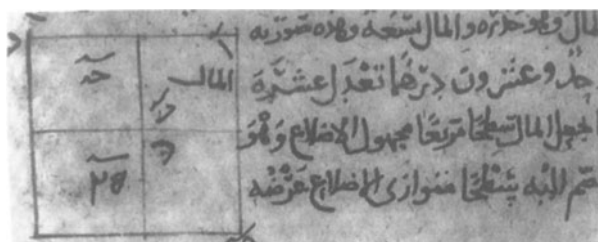 المال وهو جذره والمال تسعة وهذه صورته
حد وعشرون درهما تعدل عشرة
نجعل المال سطحا مربعا مجهول الاضلاع وهو
نضم اليه سطحا متوازى الاضلاع عرضه
المال